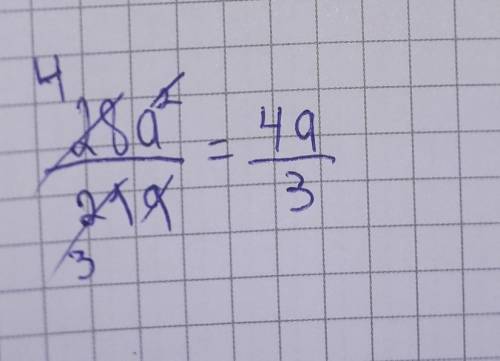 4
28a² / 21a = 4a / 3
3